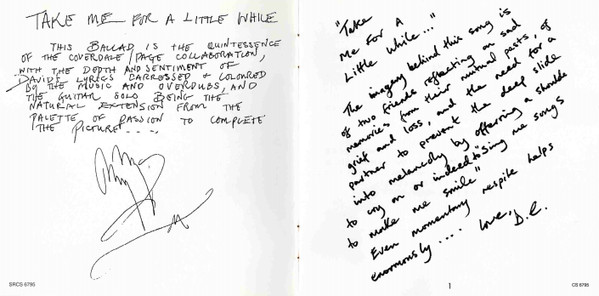 TAKE ME FOR A LITTLE WHILE
THIS BALLAD IS THE QUINTESSENCE
OF THE COVERDALE/PAGE COLLABORATION,
WITH THE DEPTH AND SENTIMENT OF
DAVIDS LYRICS CARRESSED & COLOURED
BY THE MUSIC AND OVERDUBS, AND
THE GUITAR SOLO BEING THE
NATURAL EXTENSION FROM THE
PALETTE OF PASSION TO COMPLETE
THE PICTURE....
SRCS 6795
"Take
Me For A
Little While..."
The imagery behind this song is
of two friends reflecting on sad
memories from their mutual pasts, of
grief and loss, and the need for a
partner to prevent the deep slide
into melancholy by offering a shoulder
to cry on or indeed to "Sing me songs
to make me smile"
Even momentary respite helps
enormously.... love, D.C.
1
CS 6795